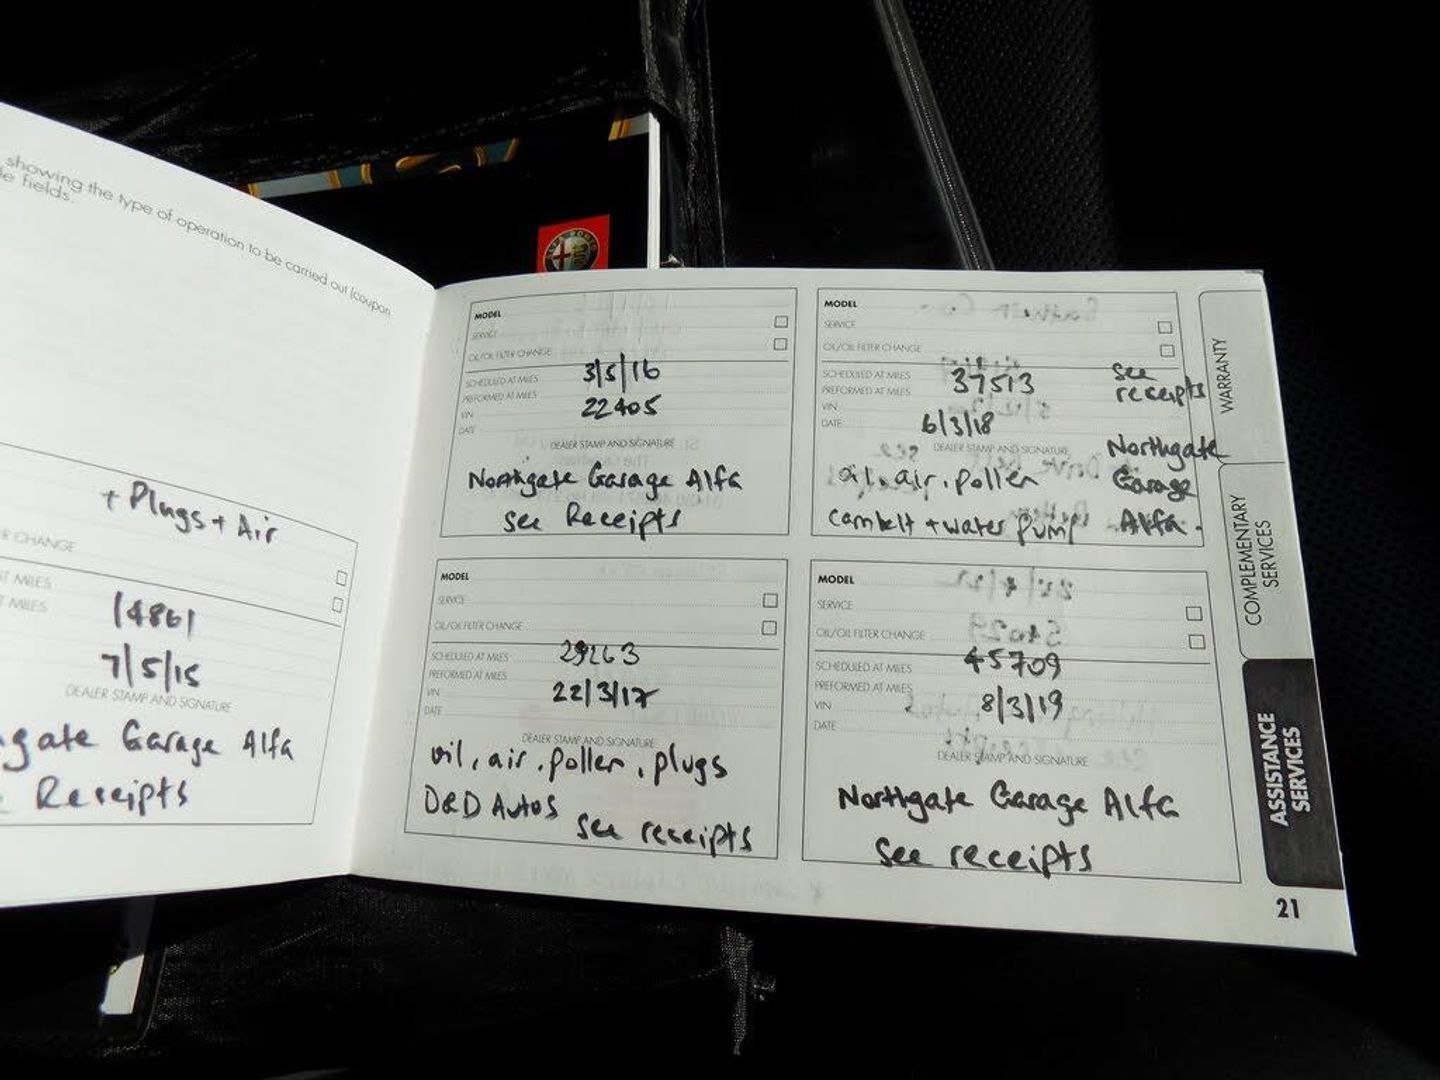 showing the type of operation to be carried out (coupon
le fields.
+ Plugs + Air
R CHANGE
AT MILES
AT MILES
14861
7/5/15
DEALER STAMP AND SIGNATURE
gate Garage Alfa
Receipts
MODEL
SERVICE
OIL/OIL FILTER CHANGE
SCHEDULED AT MILES 3/5/16
PREFORMED AT MILES
VIN 22405
DATE
DEALER STAMP AND SIGNATURE
Northgate Garage Alfa
see Receipts
MODEL
SERVICE
OIL/OIL FILTER CHANGE
SCHEDULED AT MILES 37513 see
PREFORMED AT MILES receipts
VIN
DATE 6/3/18
DEALER STAMP AND SIGNATURE Northgate
oil, air, pollen Garage
cambelt + water pump Alfa.
MODEL
SERVICE
OIL/OIL FILTER CHANGE
SCHEDULED AT MILES 29263
PREFORMED AT MILES
VIN 22/3/17
DATE
DEALER STAMP AND SIGNATURE
oil, air, pollen, plugs
D&D Autos see receipts
MODEL
SERVICE
OIL/OIL FILTER CHANGE
SCHEDULED AT MILES 45709
PREFORMED AT MILES
VIN 8/3/19
DATE
DEALER STAMP AND SIGNATURE
Northgate Garage Alfa
see receipts
WARRANTY
COMPLEMENTARY
SERVICES
ASSISTANCE
SERVICES
21